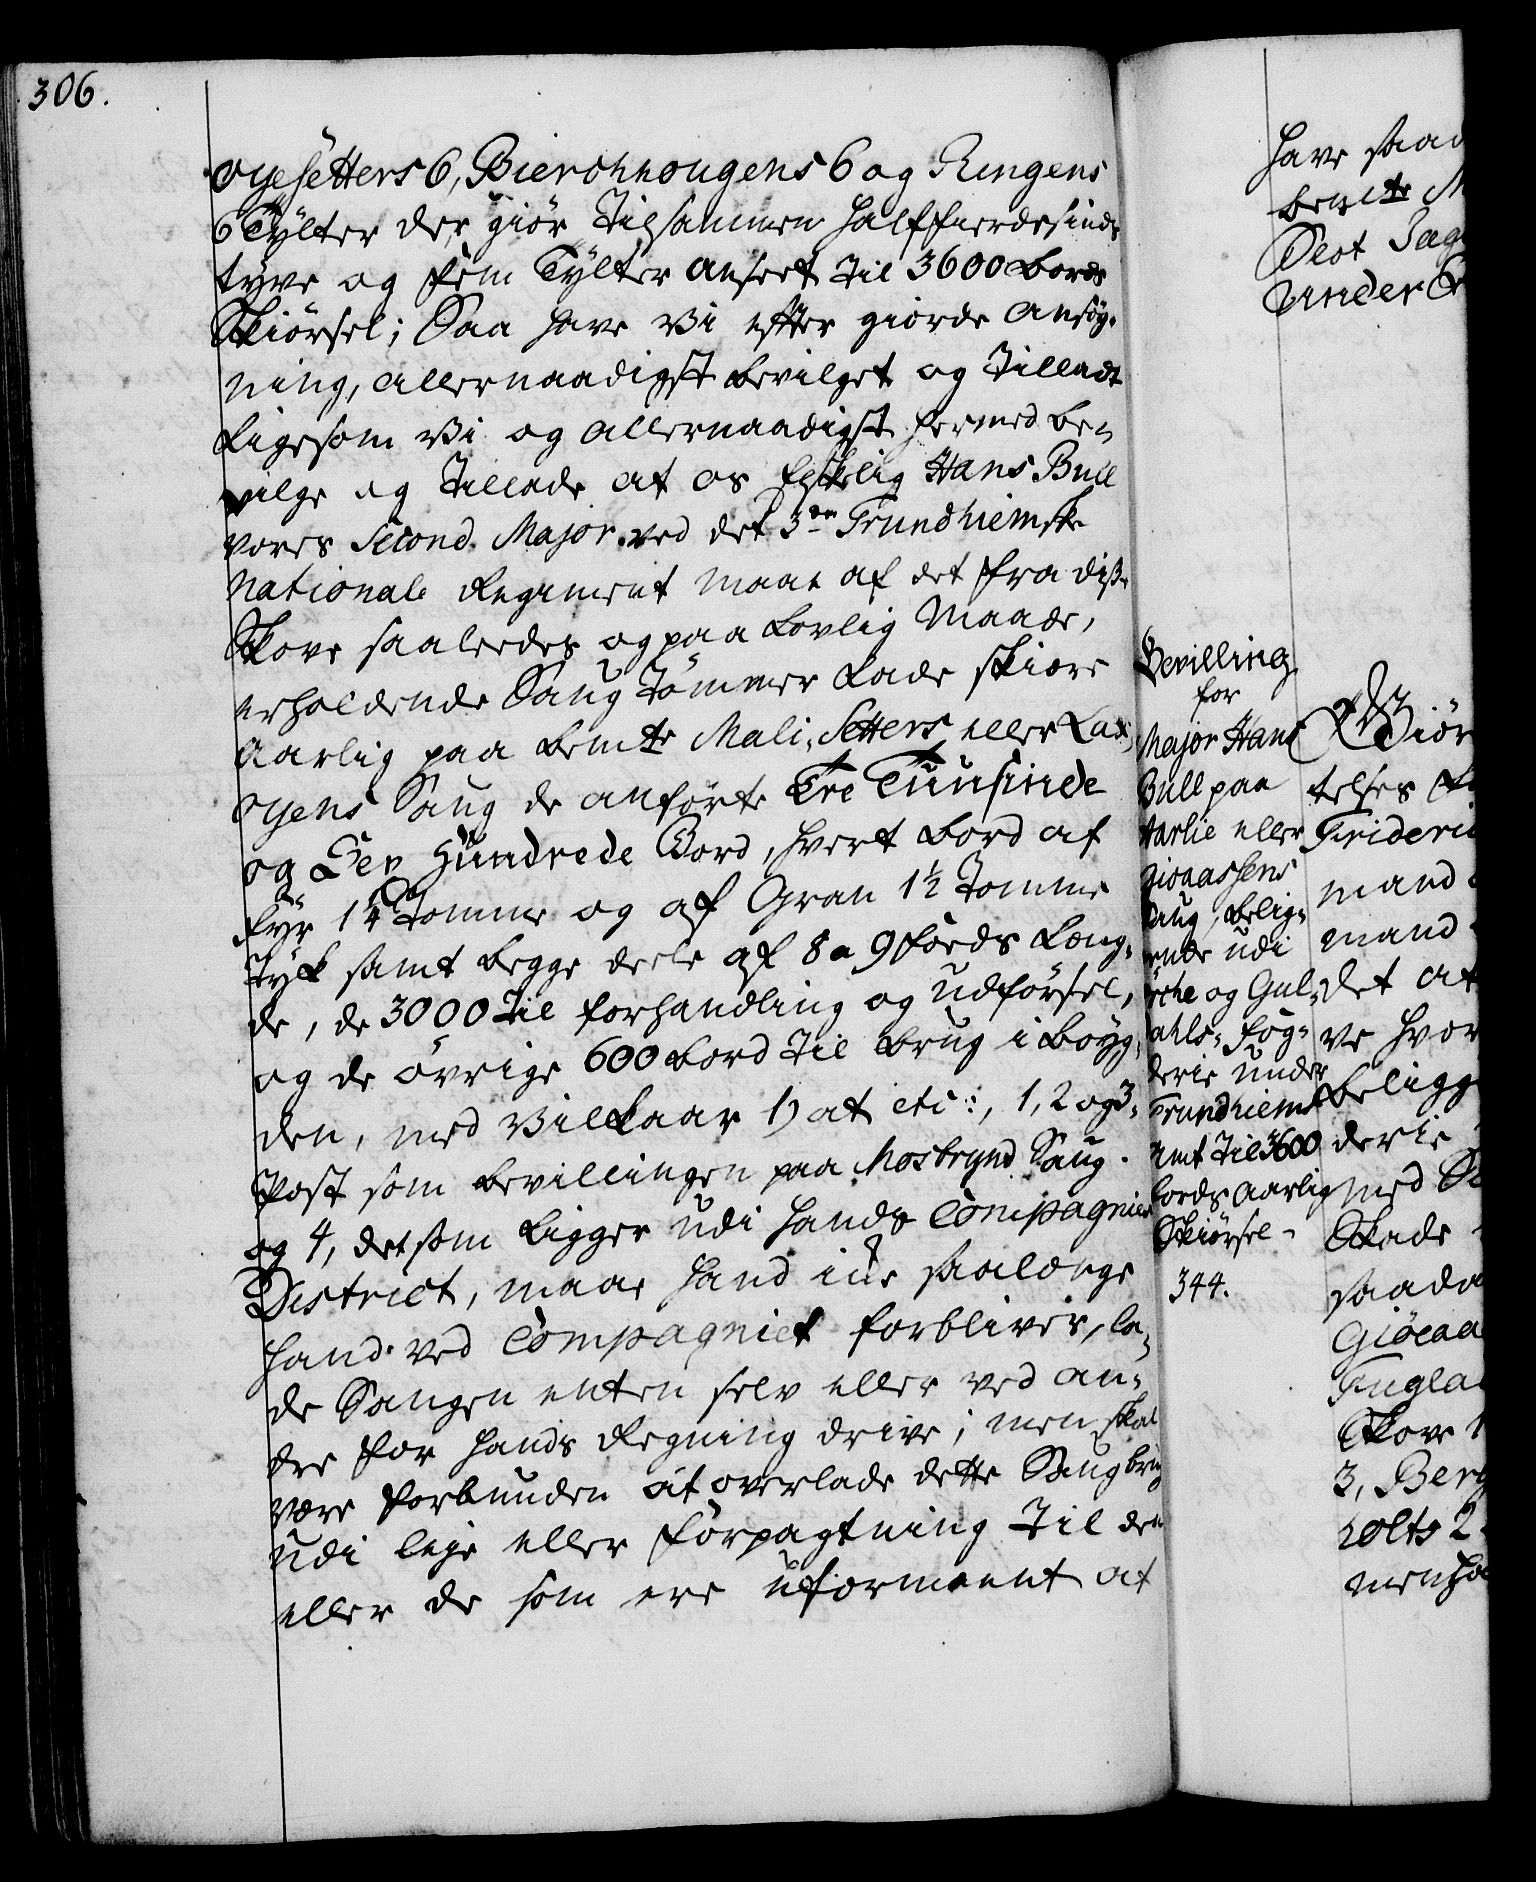 306.
oyesetters 6, Bierchhougens 6 og Ringens
6 Tylter der giør Tilsammen halffierdesinds
tyve og fem Tylter ansert til 3600 bords
Skiørsel; Saa have Vi efter giorde ansøg-
ning, allernaadigst bevilget og Tilladt
Ligesom Vi og allernaadigst hermed be-
vilge og Tillade at os Elskelig Hans Bull
vores Second Major ved det 3de Trundhiemske
nationale Regiment maae af det fra disse
Skove saaledes og paa Lovlig Maade,
erholdende Saug Tømmer Lade skiære
aarlig paa bemte Mali, Setters eller Lax-
oyens Saug de anførte Tre Tuusinde
og Sex Hundrede Bord, hvert bord af
Fyr 1¼ Tomme og af Gran 1½ Tomme
Tyk samt begge deele af 8 a 9 foeds Læng-
de, de 3000 Til forhandling og Udførsel,
og de øvrige 600 bord Til brug i bøyg-
den, med Vilkaar 1) at etc:, 1, 2 og 3.
Post som bevillingen paa Mostrynd Saug.
og 4, det som Ligger udi hands Compagnies
District, maae hand iche saalænge
hand ved Compagniet forbliver, la-
de Saugen enten selv eller ved an-
dre for hands Regning drive; men skal
være forbunden at overlade dette Saugbrug
udi leje eller forpagtning Til den
eller de som ere uformeent at
have saa
bemte M
Slot
Under
Bevilling
for
Major Hans
Bull paa
Harlie eller
Giøaassens
Saug, belig-
ende udi
og Gul-
dahls-Fog-
derie under
Trundhiems
Amt Til 3600
bords aarlig
Skiørsel-
344.
Giør
telses
Frideric
mand
mand
det at
ve hvor
beligge
derie
med
Skade
saada
Giöeaa
Fugla
Skove
3, Berg
holts 2
menho